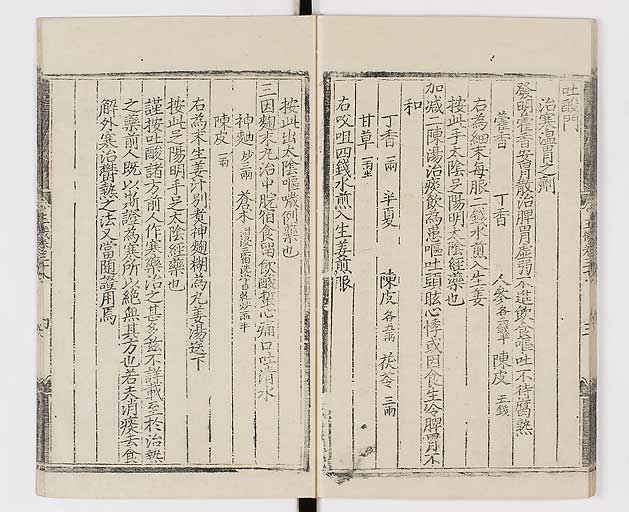 吐酸門
治寒溫胃之劑
發明藿香安胃散治脾胃虛弱不進飲食嘔吐不待腐熟
藿香 丁香 人參各二錢半 陳皮五錢
右為細末每服二錢水煎入生姜
按此手太陰足陽明太陰經藥也
加减二陳湯治痰飲為患嘔吐頭眩心悸或因食生冷脾胃不
和
丁香一兩 半夏 陳皮各五兩 茯苓三兩
甘草一兩半
右㕮咀四錢水煎入生姜煎服
按此出太陰嘔噦例藥也
三因麴末丸治中脘宿食留飲酸橫心痛口吐清水
神麴炒三兩 蒼木泔浸三宿洗淨日乾炒兩半
陳皮一兩
右為末生姜汁別煮神麴糊為丸姜湯送下
按此足陽明手足太陰經藥也
謹按吐酸諸方前人作寒藥治之甚多茲不詳載至於治熱
之藥前人既以澌證為寒所以絕無其方也若夫消痰去食
解外寒治鬱熱之法又當隨證用焉